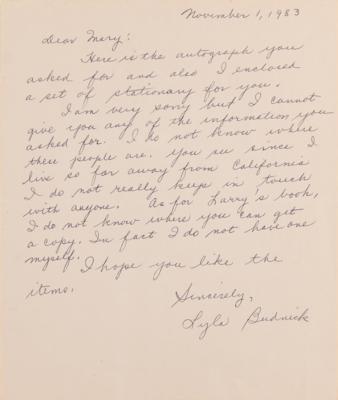 November 1, 1983
Dear Mary:
Here is the autograph you
asked for and also I enclosed
a set of stationary for you.
I am very sorry but I cannot
give you any of the information you
asked for. I do not know where
these people are. You see since I
live so far away from California
I do not really keep in touch
with anyone. As for Larry's book,
I do not know where you can get
a copy. In fact I do not have one
myself.
I hope you like the
items.
Sincerely,
Lyla Budnick